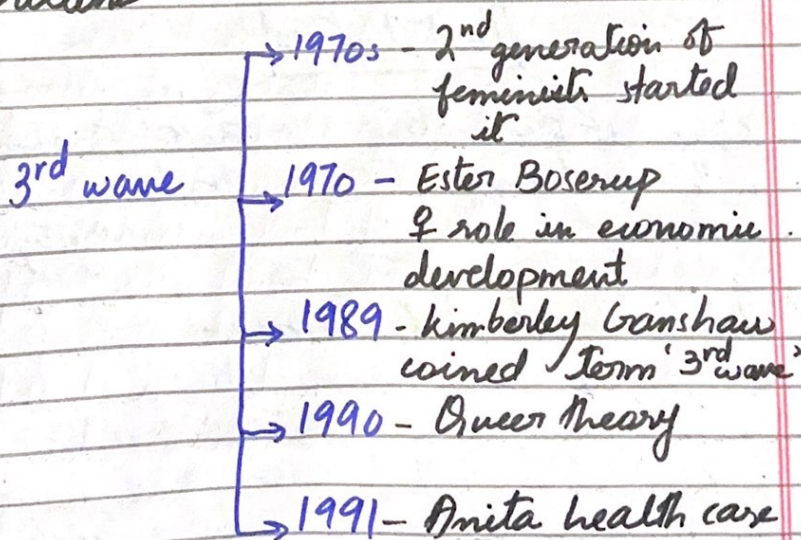 1970s - 2nd generation of
feminists started
it
3rd wave
1970 - Ester Boserup
♀ role in economic
development
1989 - kimberley Cranshaw
coined term '3rd wave'
1990 - Queer theory
1991 - Anita health case